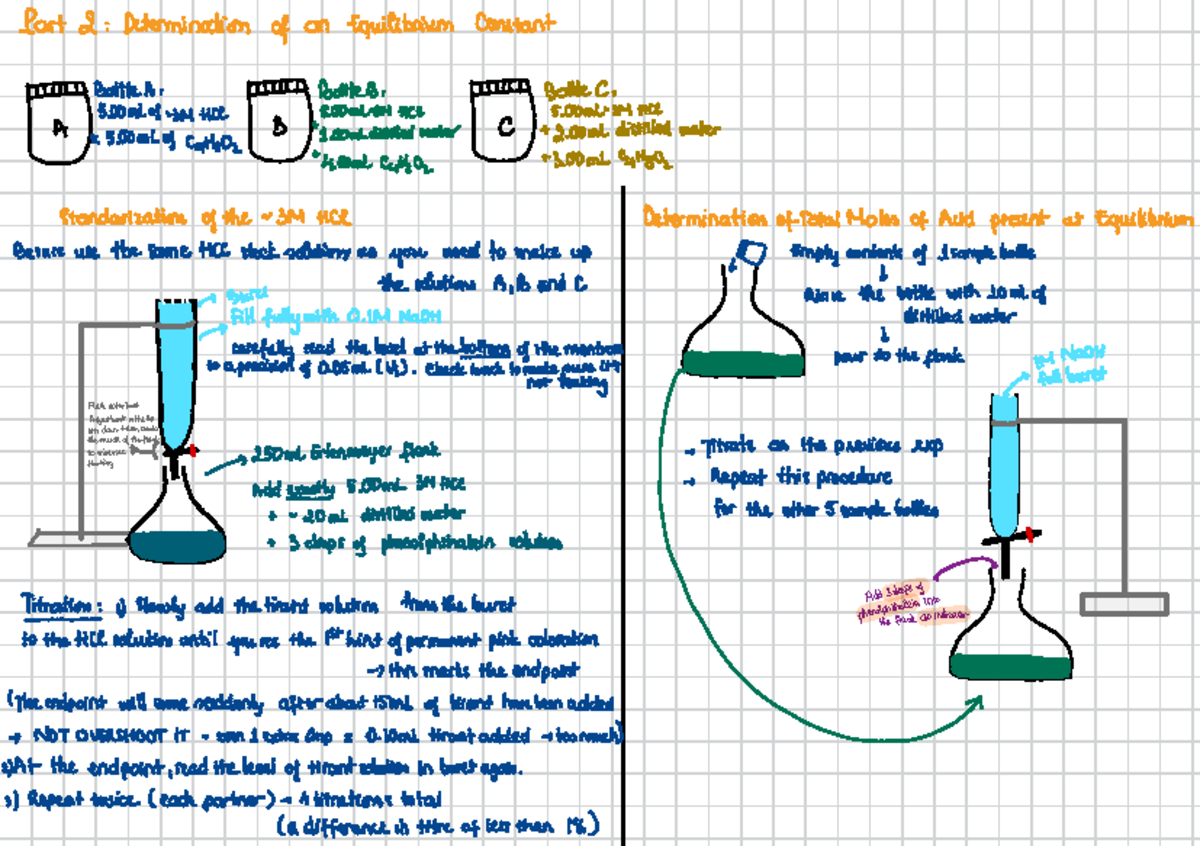 Part 2: Determination of an Equilibrium Constant
A
Bottle A:
5.00mL of ~3M HCl
+ 5.00mL of C4H8O2
B
Bottle B:
5.00mL 3M HCl
+ 1.00mL distilled water
+ 4.00mL C4H8O2
C
Bottle C:
5.00mL 3M HCl
+ 2.00mL distilled water
+ 3.00mL C4H8O2
Standarization of the ~3M HCl
use the same HCl stock solutions as you used to make up
the solutions A, B and C
Buret
Fill fully with 0.1M NaOH
carefully read the level at the bottom of the
to a precision of 0.05mL (V1). Check back to make sure
not leaking
250mL Erlenmeyer flask
Add exactly 5.00mL 3M HCl
+ ~20mL distilled water
+ 3 drops of phenolphthalein solution
Titration: 1) Slowly add the titrant solution from the buret
to the HCl solution until you see the 1st hint of permanent pink coloration
→ this marks the endpoint
(The endpoint will come suddenly after about 15mL of titrant have been added
→ NOT OVERSHOOT IT - even 1 extra drop = 0.10mL titrant added → too much)
2) At the endpoint, read the level of titrant solution in buret again.
3) Repeat twice (each partner) → 4 titrations total
(a difference in titre of less than 1%)
Determination of Total Moles of Acid present at Equilibrium
Empty contents of 1 sample bottle
↓
Rinse the bottle with 10mL of
distilled water
↓
pour to the flask
1M NaOH
full buret
→ Titrate as the previous exp
→ Repeat this procedure
for the other 5 sample bottles
Add 3 drops of
phenolphthalein into
the flask as indicator